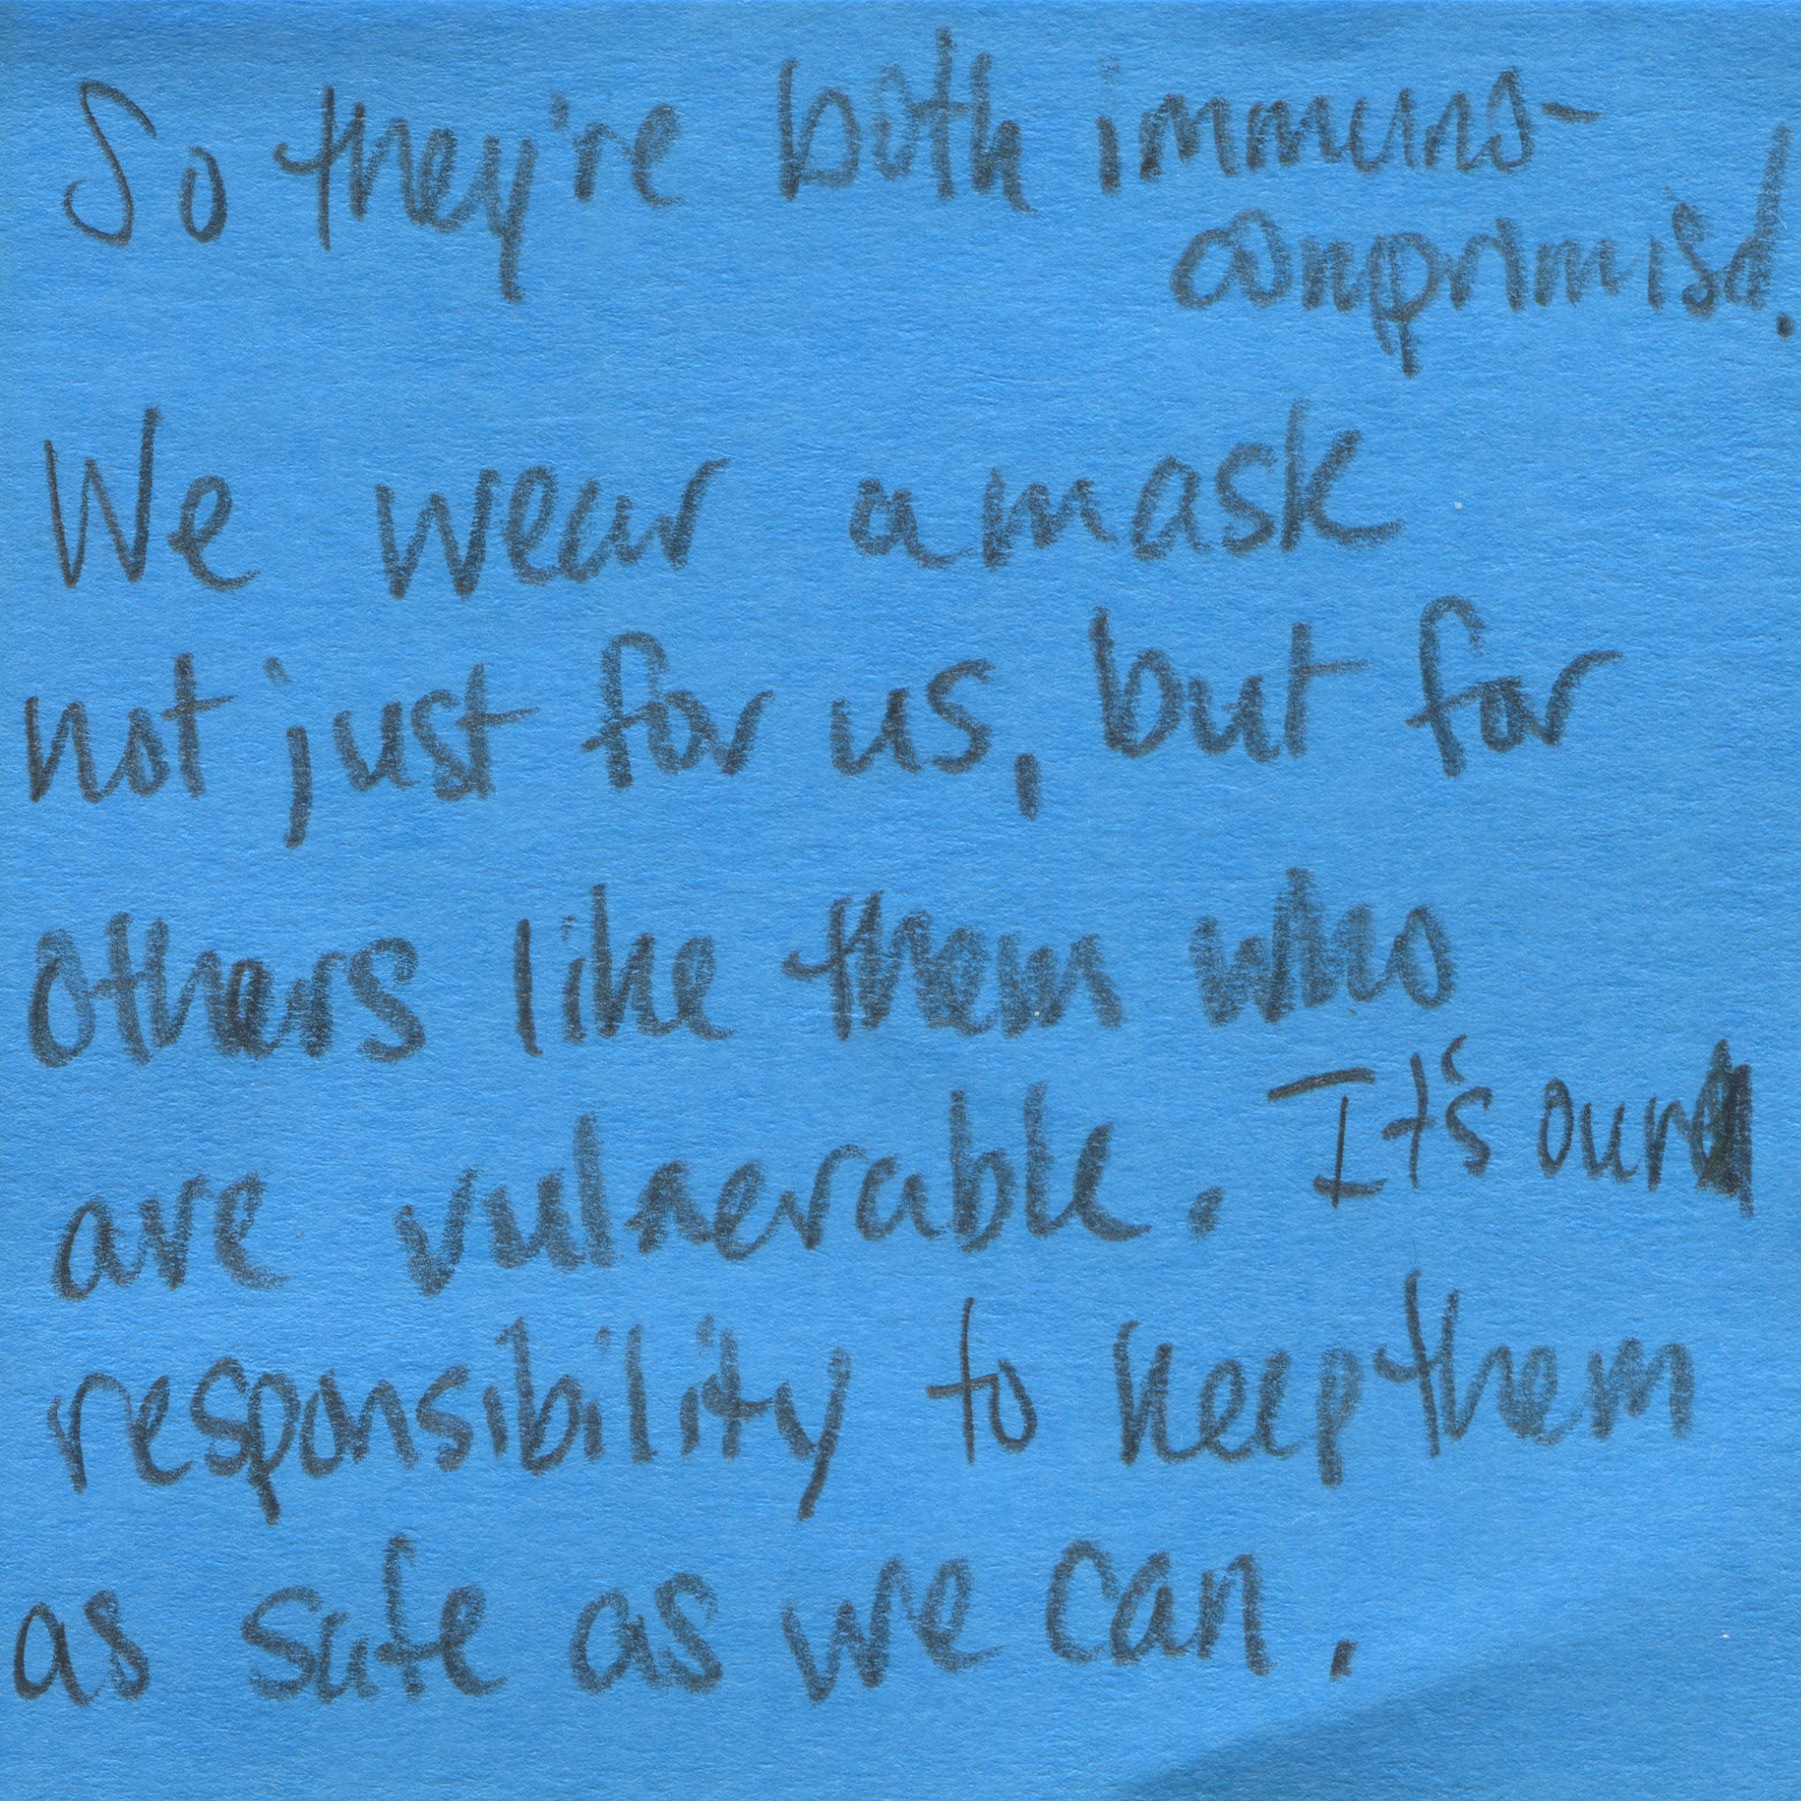 So they're both immuno-
comprimisd!
We wear a mask
not just for us, but for
others like them who
are vulnerable. It's our
responsibility to keep them
as safe as we can.